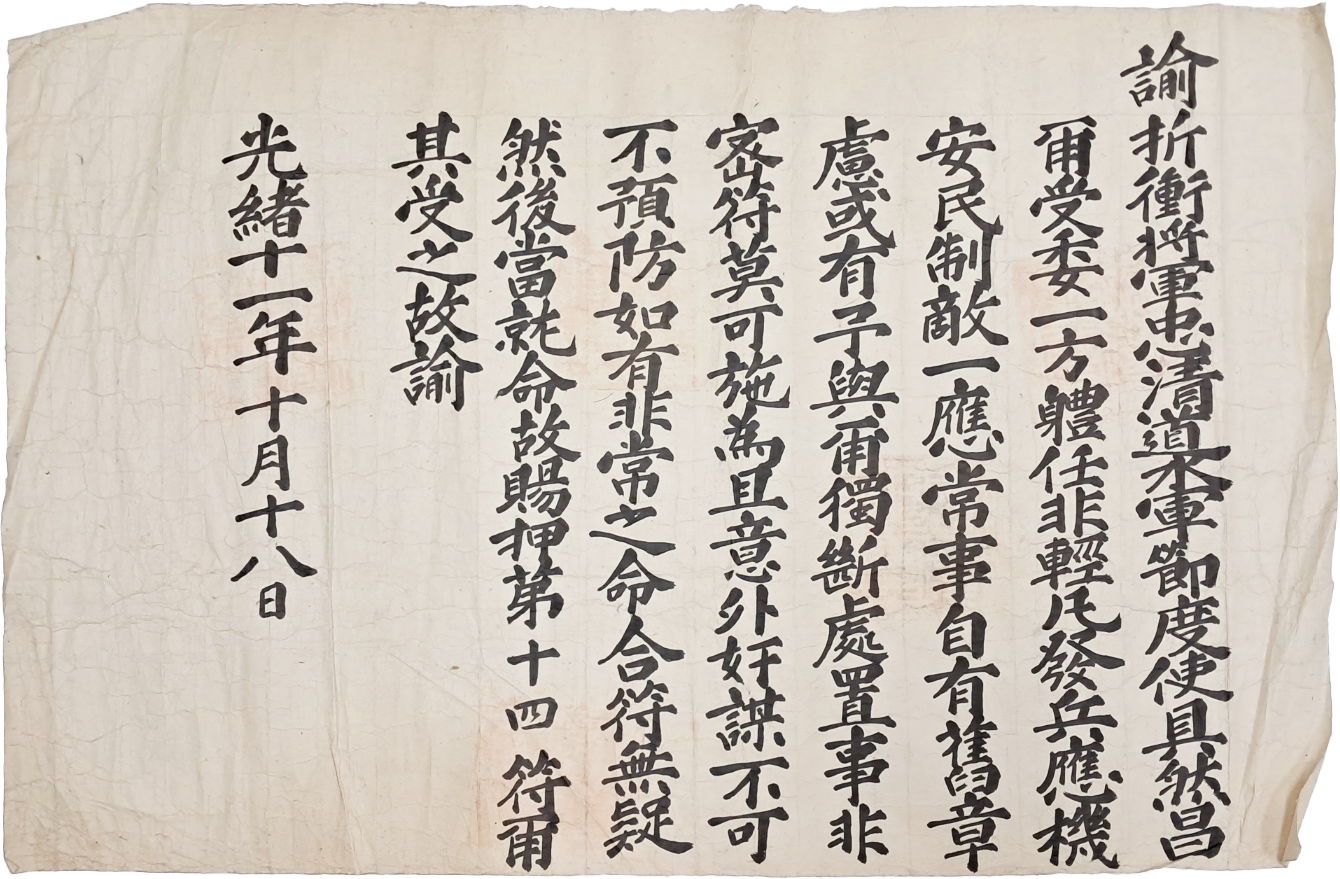 諭折衝將軍忠清道水軍節度使具然昌
爾受委一方體任非輕凡發兵應機
安民制敵一應常事自有舊章
慮或有予與爾獨斷處置事非
密符莫可施為且意外奸謀不可
不預防如有非常之命合符無疑
然後當就命故賜押第十四符爾
其受之故諭
光緒十一年十月十八日